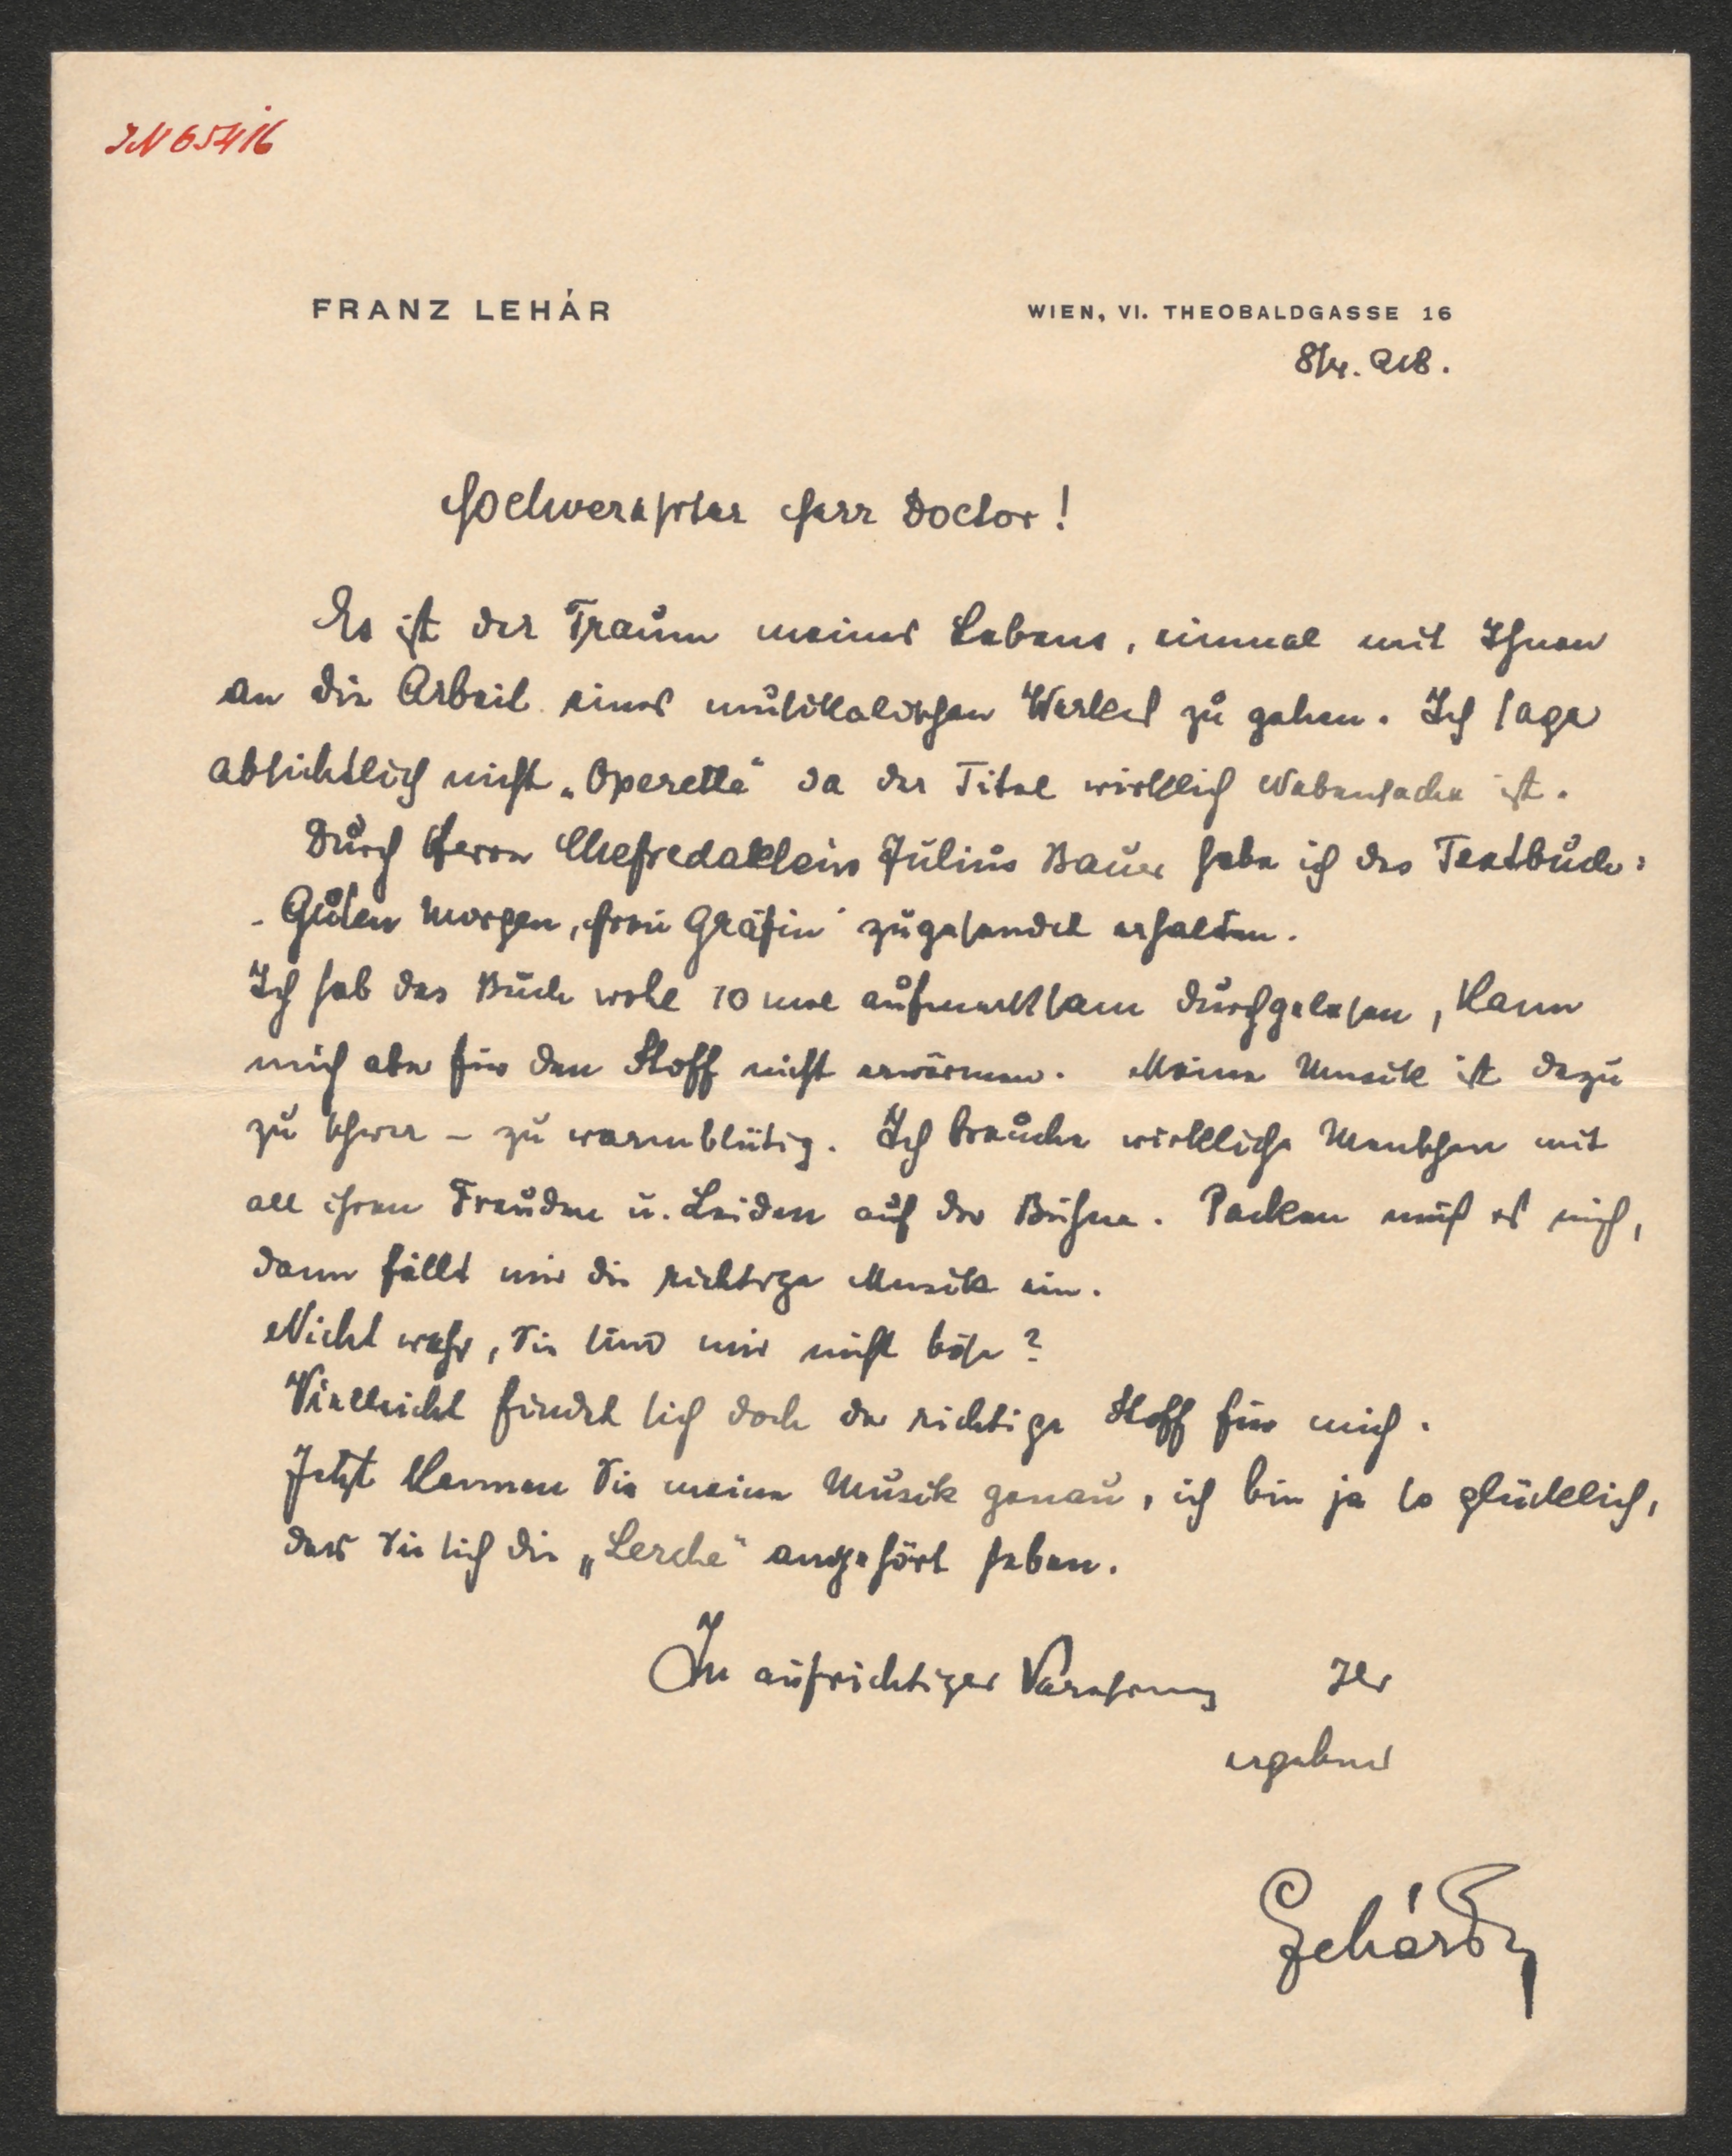 IN 65416
FRANZ LEHÁR
WIEN, VI. THEOBALDGASSE 16
8/4. 918.
Hochverehrter Herr Doctor!
Es ist der Traum meines Lebens, einmal mit Ihnen
an die Arbeit eines musikalischen Werkes zu gehen. Ich sage
absichtlich nicht „Operette“ da der Titel wirklich Nebensache ist.
Durch Herrn Chefredakteur Julius Bauer habe ich das Textbuch:
„Guten Morgen, Frau Gräfin“ zugesendet erhalten.
Ich hab das Buch wohl 10 mal aufmerksam durchgelesen, kann
mich aber für den Stoff nicht erwärmen. Meine Musik ist dazu
zu schwer – zu warmblütig. Ich brauche wirkliche Menschen mit
all ihren Freuden u. Leiden auf der Bühne. Packen muß es mich,
dann fällt mir die richtige Musik ein.
Nicht wahr, Sie sind mir nicht böse?
Vielleicht findet sich doch der richtige Stoff für mich.
Jetzt kennen Sie meine Musik genau, ich bin ja so glücklich,
dass Sie sich die „Lerche“ angehört haben.
In aufrichtiger Verehrung Ihr
ergebener
Lehár